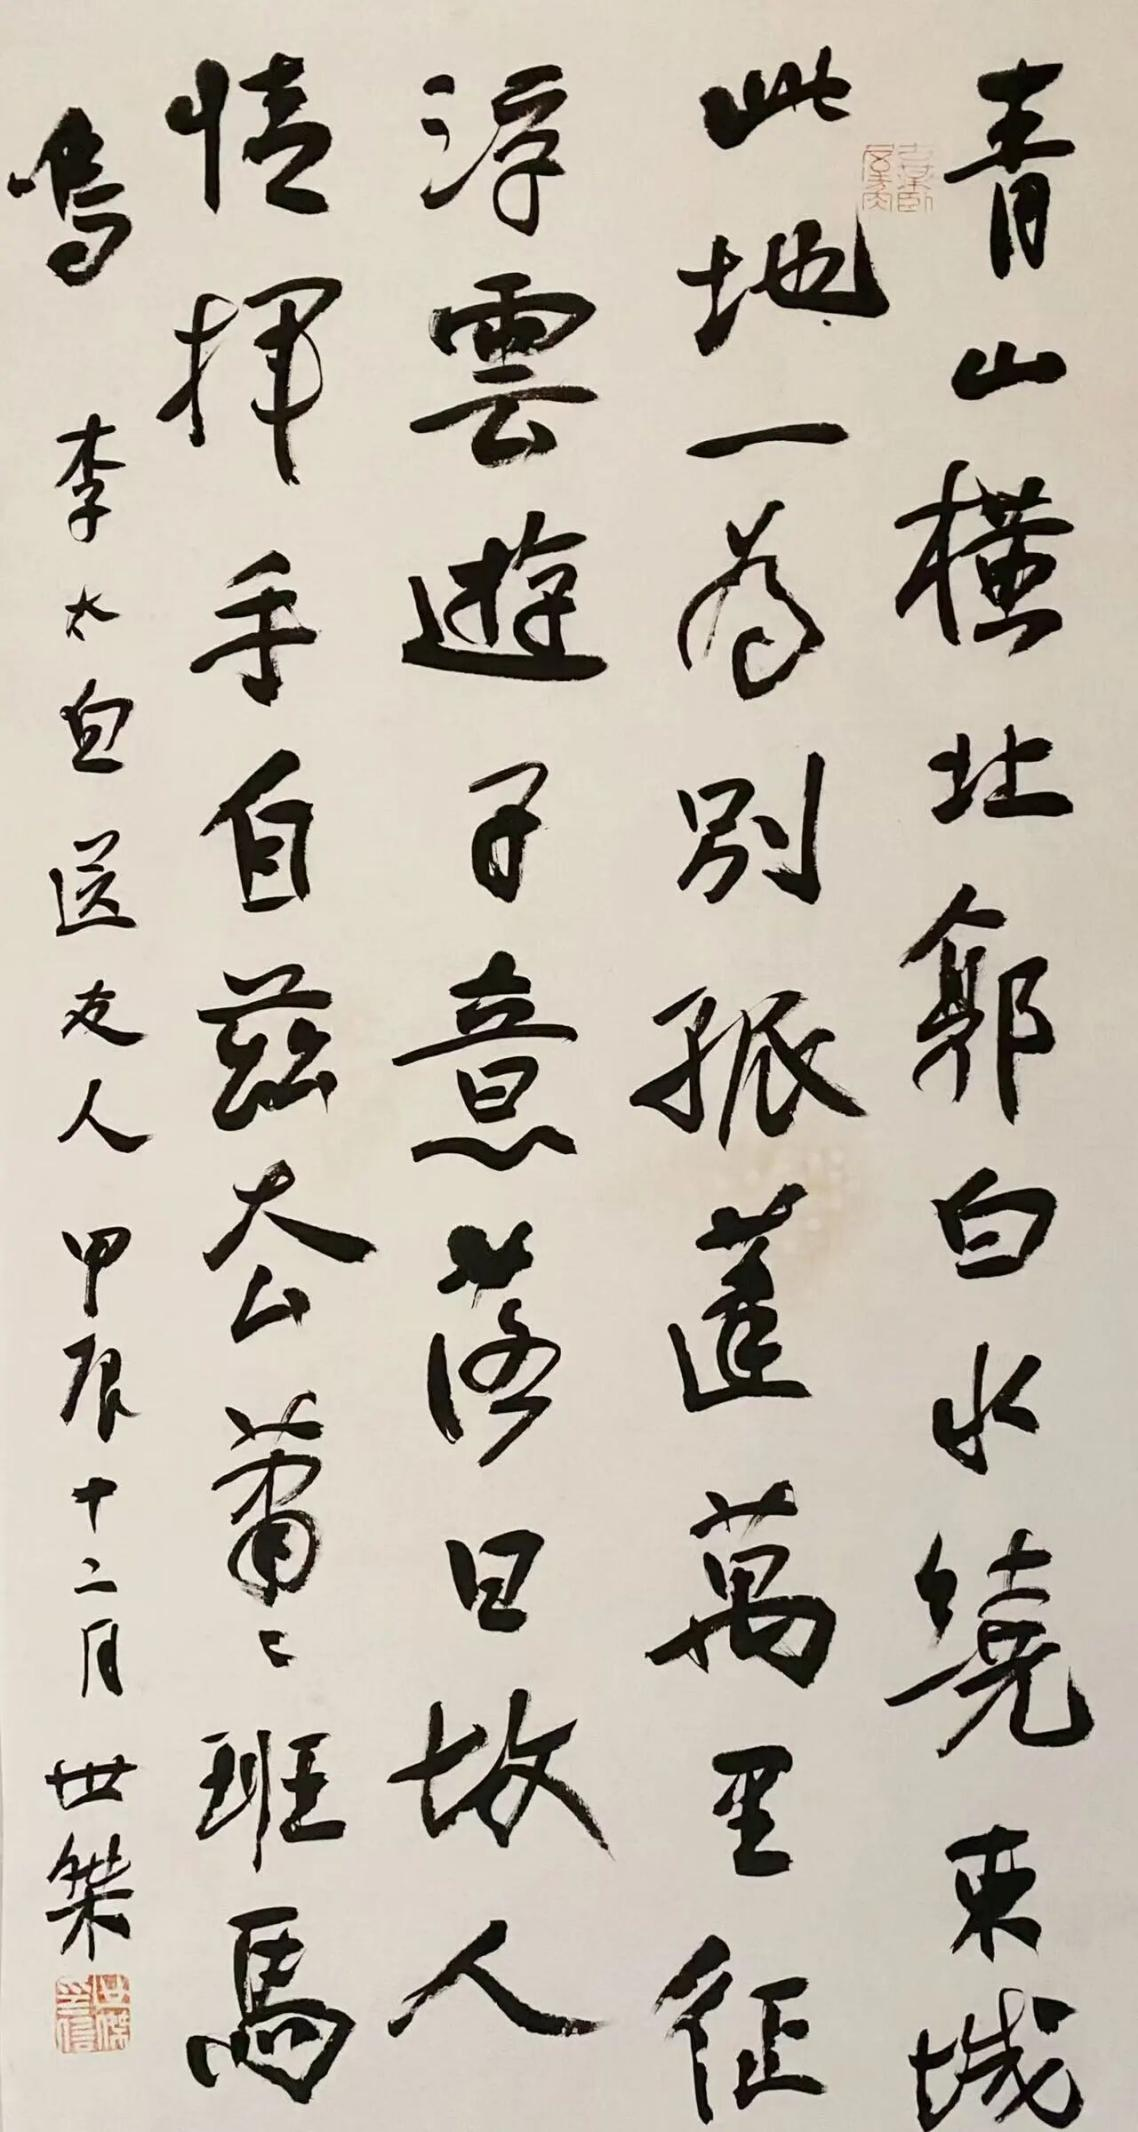 青山橫北郭白水繞東城
此地一為別孤蓬萬里征
浮雲遊子意落日故人
情揮手自茲去蕭〻班馬
鳴 李太白送友人 甲辰十二月 世桀
世傑印信